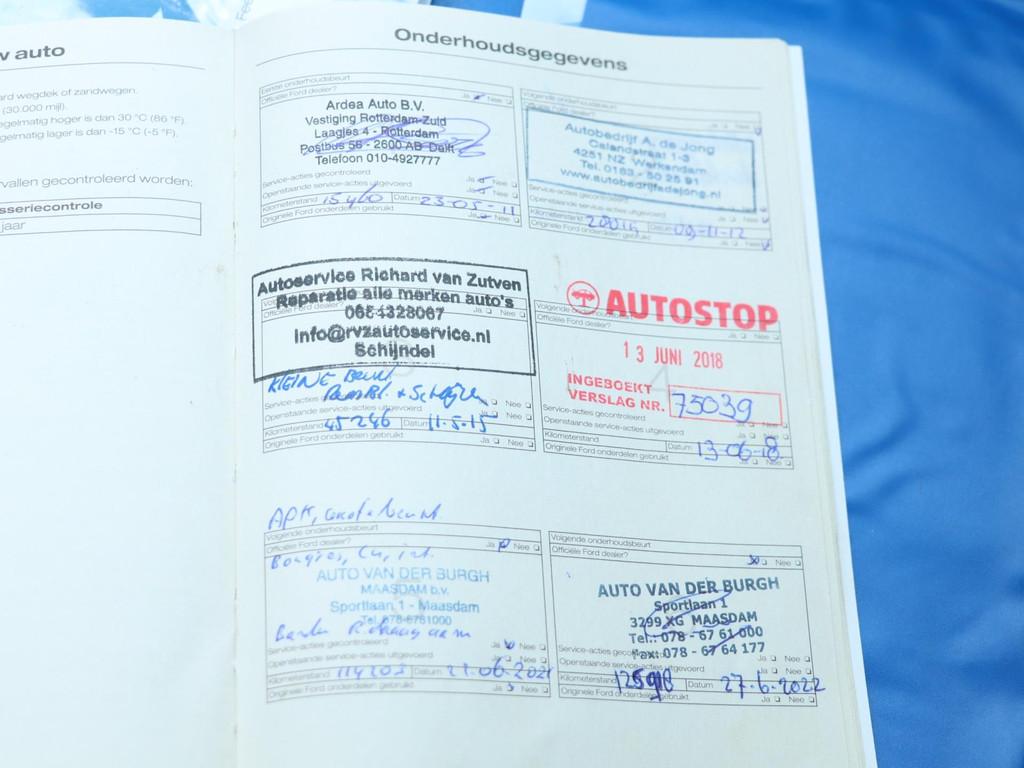 v auto
ard wegdek of zandwegen.
(30.000 mijl).
egelmatig hoger is dan 30 °C (86 °F).
egelmatig lager is dan -15 °C (-5 °F).
vallen gecontroleerd worden:
sseriecontrole
jaar
Onderhoudsgegevens
Eerste onderhoudsbeurt
Officiële Ford dealer? Ja Nee
Ardea Auto B.V.
Vestiging Rotterdam-Zuid
Laagjes 4 - Rotterdam
Postbus 56 - 2600 AB Delft
Telefoon 010-4927777
Service-acties gecontroleerd Ja Nee
Openstaande service-acties uitgevoerd Ja Nee
Kilometerstand 15460 Datum 23-05-11
Originele Ford onderdelen gebruikt Ja Nee
Volgende onderhoudsbeurt
Autobedrijf A. de Jong
Calandstraat 1-3
4251 NZ Werkendam
Tel. 0183 - 50 25 91
www.autobedrijfadejong.nl
Service-acties gecontroleerd
Openstaande service-acties uitgevoerd
Kilometerstand Datum 09-11-12
Originele Ford onderdelen gebruikt Ja Nee
Autoservice Richard van Zutven
Reparatie alle merken auto's
Info@rvzautoservice.nl
Schijndel
KLEINE Beurt
Ja Nee
Service-acties gecontroleerd
Openstaande service-acties uitgevoerd Ja Nee
Kilometerstand 45246 Datum 11-5-15
Originele Ford onderdelen gebruikt Ja Nee
AUTOSTOP
Volgende
Officiële Ford dealer? Ja Nee
13 JUNI 2018
INGEBOEKT
VERSLAG NR. 75039
Service-acties gecontroleerd
Openstaande service-acties uitgevoerd Ja Nee
Kilometerstand Datum 13-06-18
Originele Ford onderdelen gebruikt Ja Nee
APK, beurt
Volgende onderhoudsbeurt
Officiële Ford dealer? Ja Nee
AUTO VAN DER BURGH
MAASDAM b.v.
Sportlaan 1 - Maasdam
Tel. 078-6761000
Service-acties gecontroleerd Ja Nee
Openstaande service-acties uitgevoerd Ja Nee
Kilometerstand 114203 Datum 21-06-2021
Originele Ford onderdelen gebruikt Ja Nee
Volgende onderhoudsbeurt
Officiële Ford dealer? Nee
AUTO VAN DER BURGH
Sportlaan 1
3299 XG MAASDAM
Tel.: 078 - 67 61 000
Fax: 078 - 67 64 177
Service-acties gecontroleerd Ja Nee
Openstaande service-acties uitgevoerd Ja Nee
Kilometerstand Datum 27-6-2022
Originele Ford onderdelen gebruikt Ja Nee